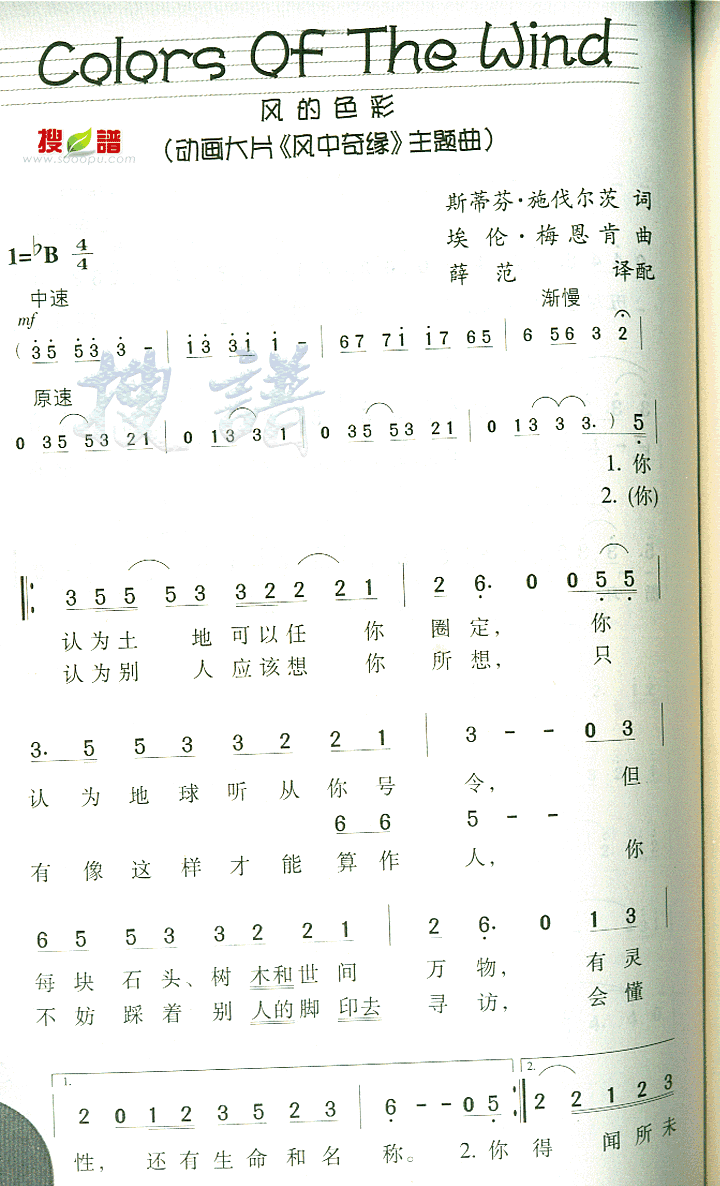 Colors Of The Wind
风的色彩
(动画大片《风中奇缘》主题曲)
搜谱
www.sooopu.com
斯蒂芬·施伐尔茨 词
埃伦·梅恩肯 曲
薛范 译配
1=♭B 4/4
中速 渐慢
mf
(35 53 3 - | 13 31 1 - | 67 71 17 65 | 6 56 3 2 |
原速
0 35 53 21 | 0 13 3 1 | 0 35 53 21 | 0 13 3 3. ) 5 |
1. 你
2. (你)
‖: 3 5 5 5 3 3 2 2 2 1 | 2 6. 0 0 5 5 |
认为土 地可以任 你 圈定, 你
认为别 人应该想 你 所想, 只
3. 5 5 3 3 2 2 1 | 3 - - 0 3 |
认为地球听从你号 令, 但
6 6 5 - -
有像这样才能算作 人, 你
6 5 5 3 3 2 2 1 | 2 6. 0 1 3 |
每块石头、树木和世间 万物, 有灵
不妨踩着别人的脚印去 寻访, 会懂
1. 2.
2 0 1 2 3 5 2 3 | 6 - - 0 5 :‖ 2 2 1 2 3
性, 还有生命和名 称。 2. 你 得 闻所未